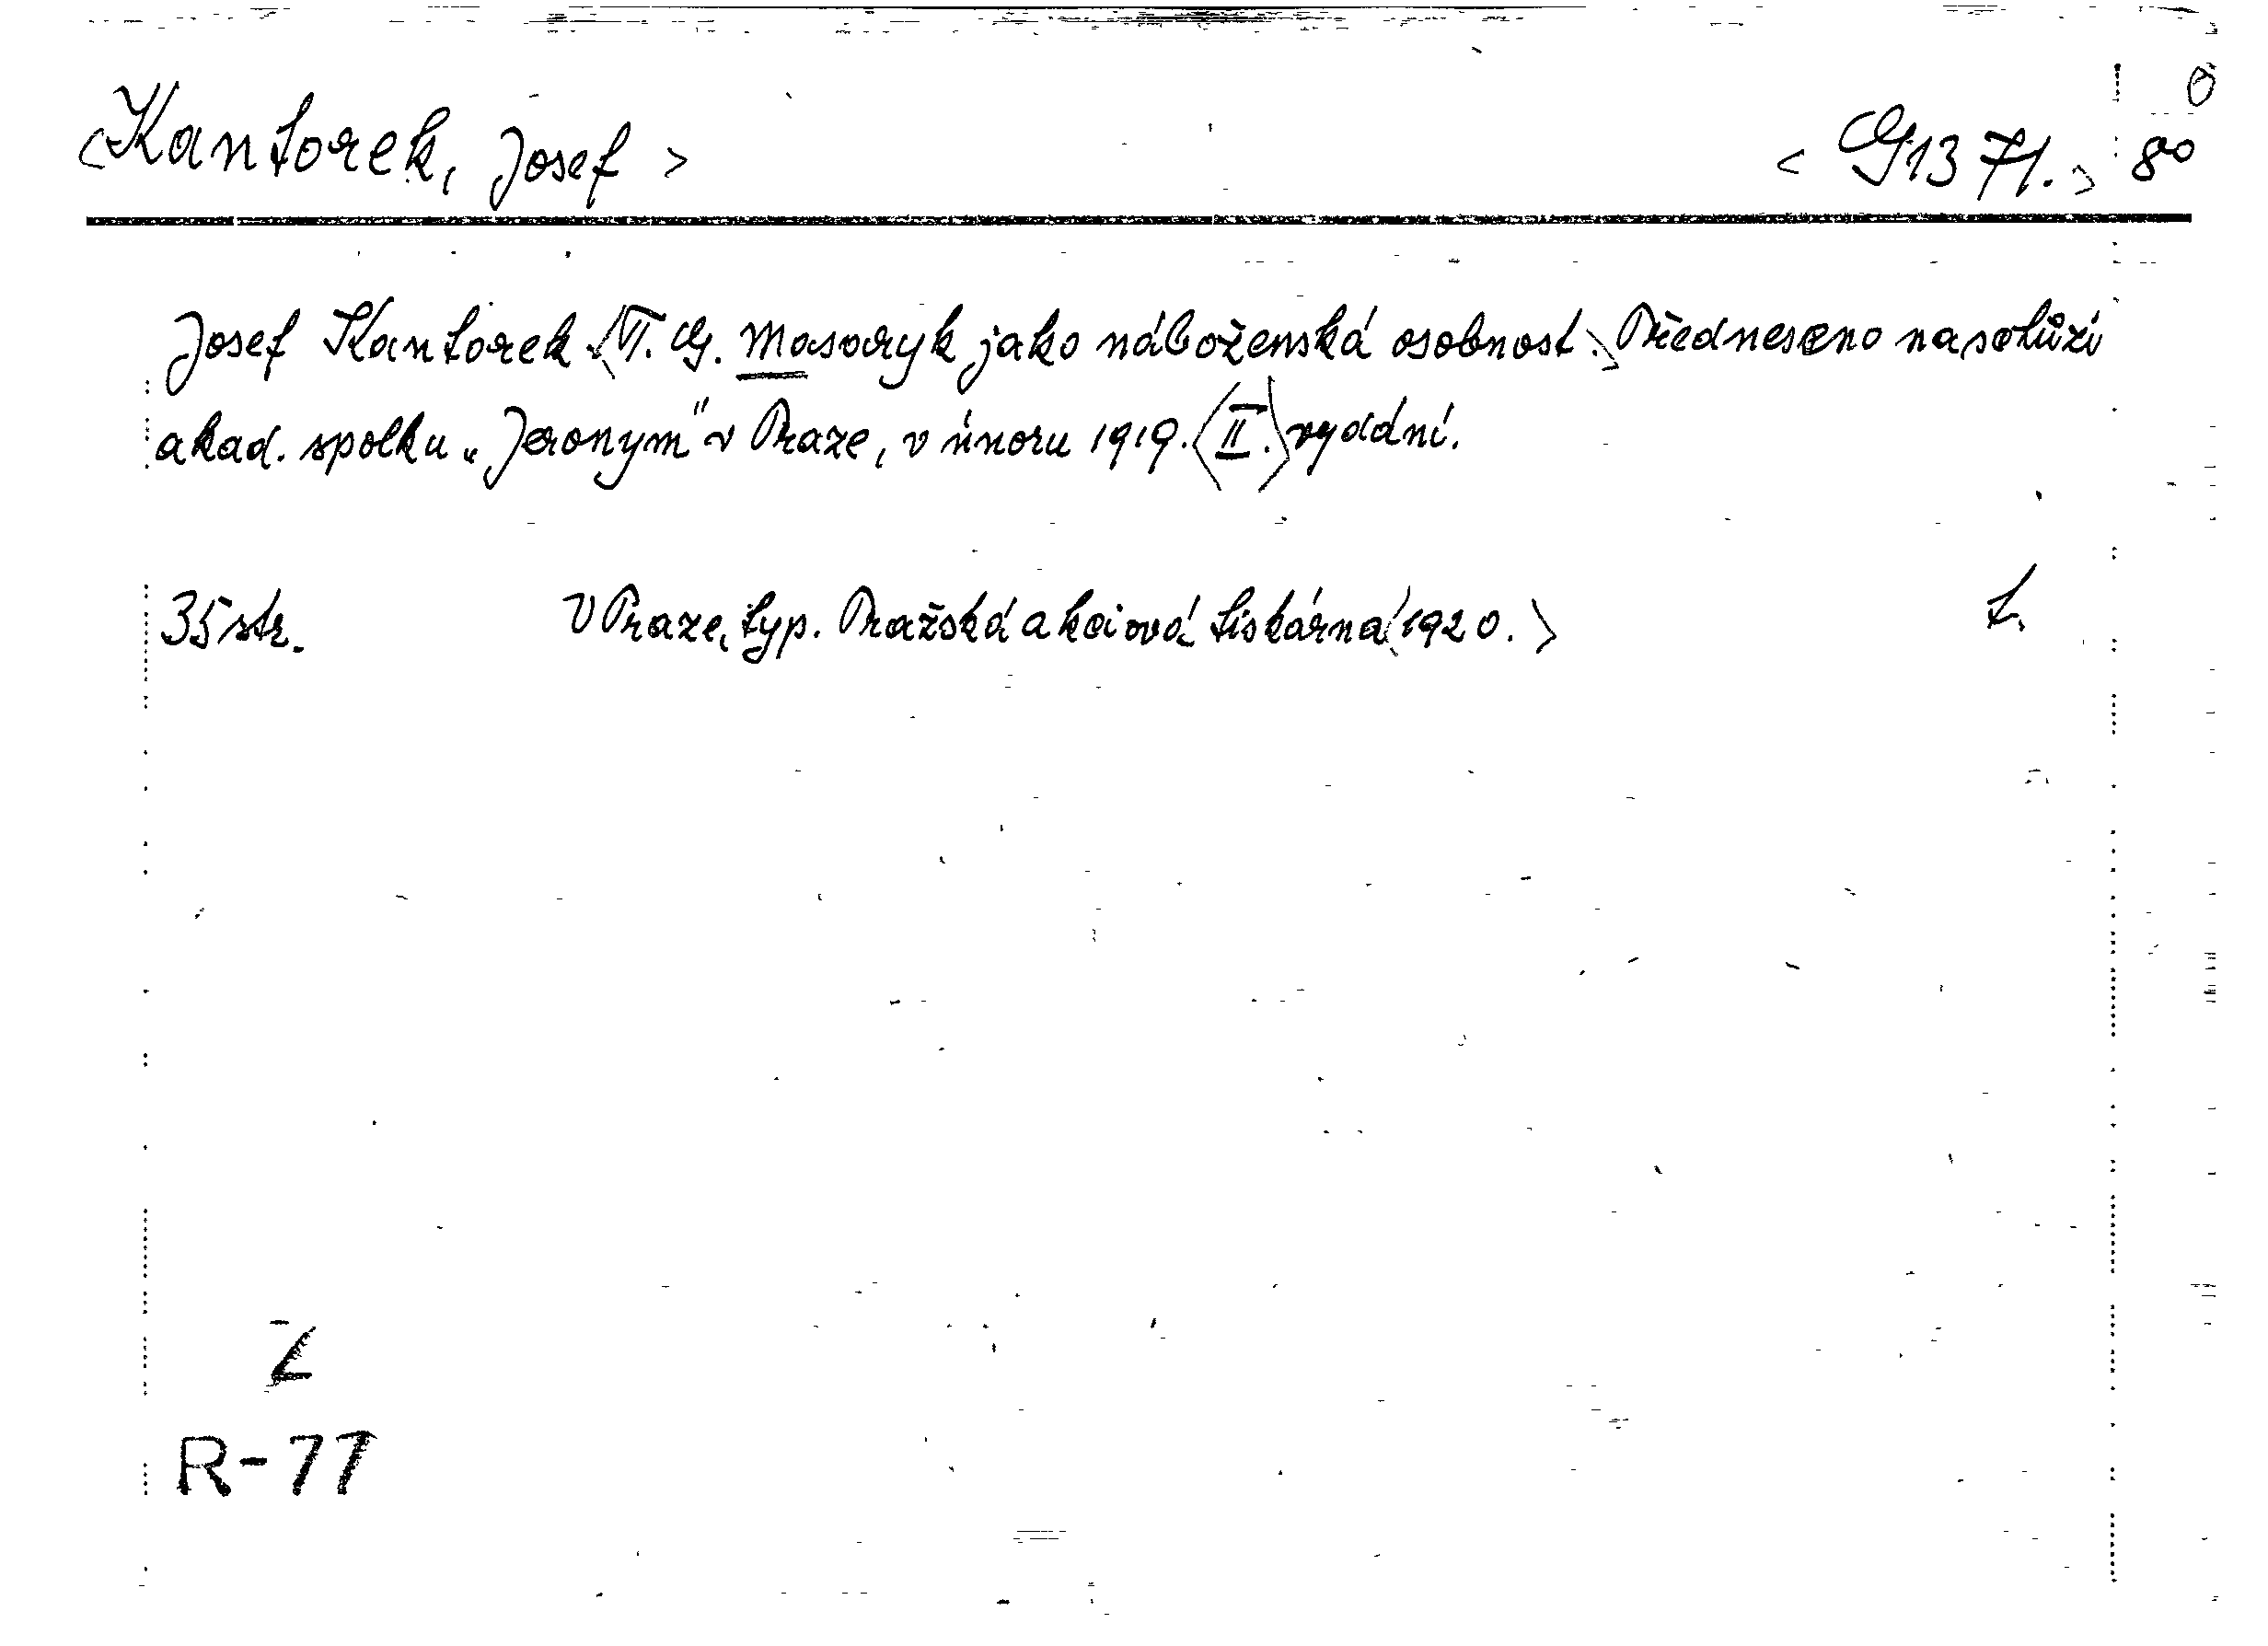 <Kantorek, Josef> <G1371.> 8°
Josef Kantorek <T. G. Masaryk jako náboženská osobnost.> Předneseno na schůzi
akad. spolku „Jeronym" v Praze, v únoru 1919. <II.> vydání.
35 str. V Praze, typ. Pražská akciová tiskárna <1920.> t.
Z
R-77